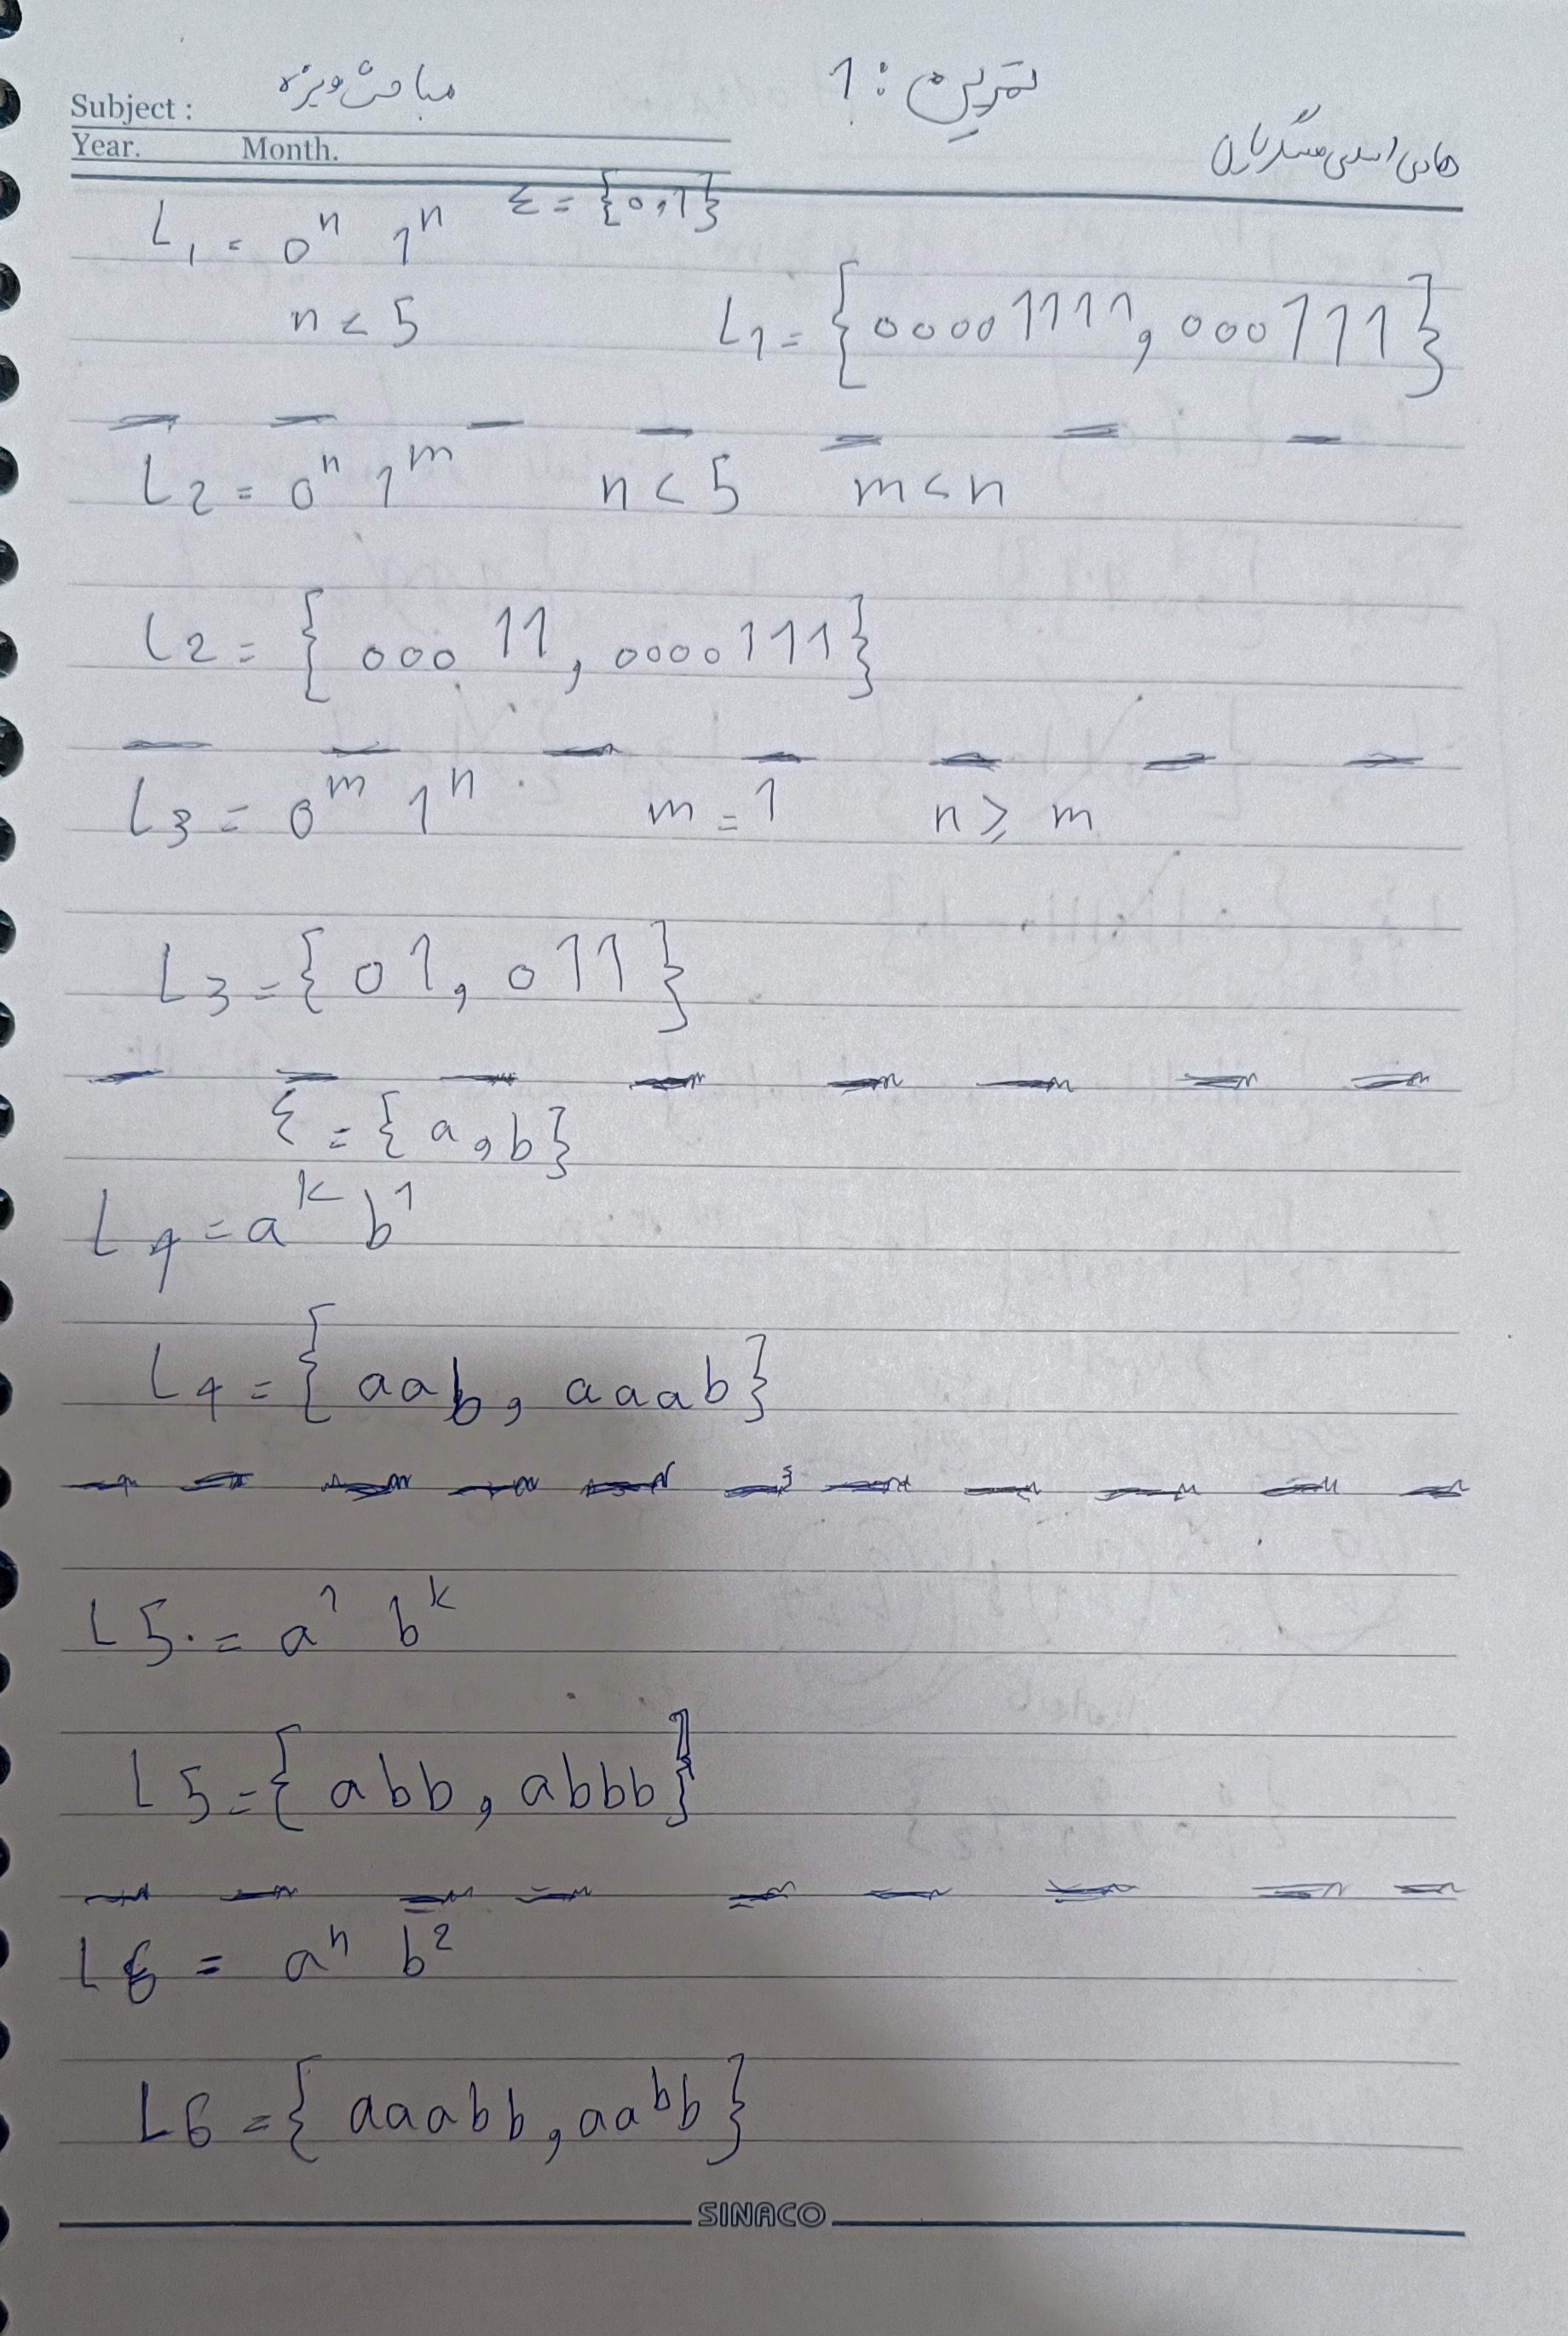 تمرین : 1
Subject : مباحث ویژه
Year. Month.
هادی اصلی
L₁ = 0ⁿ 1ⁿ Σ = {0,1}
n < 5 L1 = {00001111, 000111}
L2 = 0ⁿ 1ᵐ n < 5 m < n
L2 = {00011, 0000111}
L3 = 0ᵐ 1ⁿ m = 1 n ≥ m
L3 = {01, 011}
Σ = {a, b}
L4 = aᵏ b¹
L4 = {aab, aaab}
L5 = a¹ bᵏ
L5 = {abb, abbb}
L6 = aⁿ b²
L6 = {aaabb, aabb}
SINACO